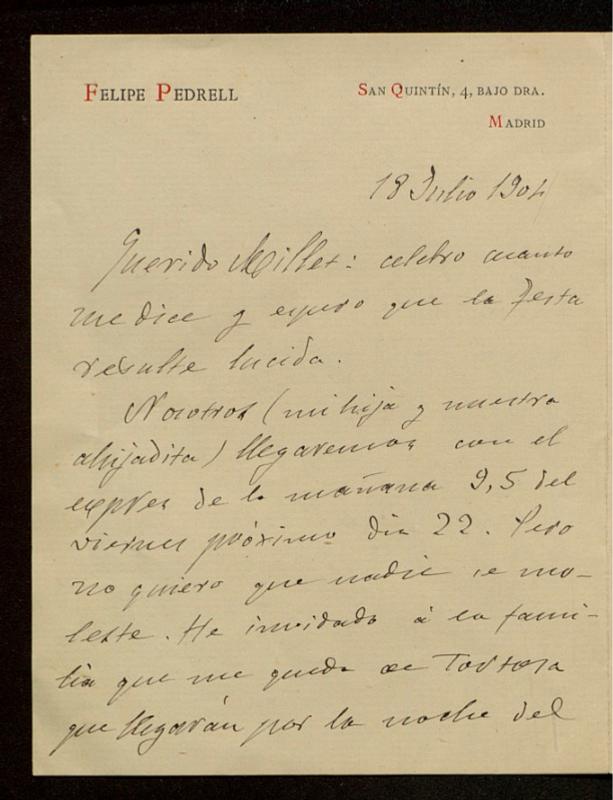 FELIPE PEDRELL
SAN QUINTÍN, 4, BAJO DRA.
MADRID
18 Julio 1904
Querido Millet: celebro cuanto
me dice y espero que la festa
resulte lucida.
Nosotros (mi hija y nuestra
ahijadita) llegaremos con el
expres de la mañana 9,5 del
viernes próximo dia 22. Pero
no quiero que nadie se mo-
leste. He invidado á la fami-
lia que me queda de Tortosa
que llegarán por la noche del